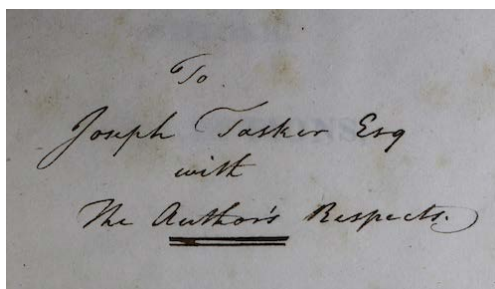 To
Joseph Tasker Esq
with
The Author's Respects.